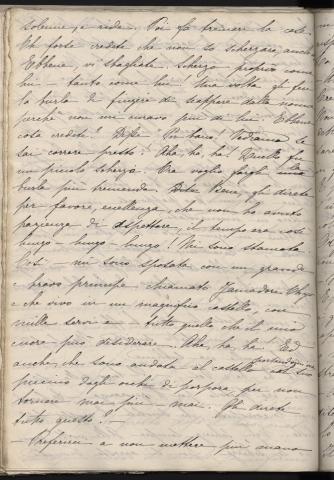 solenne, e ride. Poi fa tremare la
Eh forse credete che non so scherzare, anch
Ebbene, vi sbagliate, scherzo proprio come
lui tanto come lui. Una volta gli feci
la burla di fingere di scappare dalla nonna
perchè non mi curavo più di lui. Ebbene
cosa credete?
sai correre presto! Aha, ha, ha! Quello fu
un piccolo scherzo. Ora voglio fargli una
burla più tremenda. Bene, gli direte
per favore, eccellenza, che non ho avuto
pazienza di aspettare, il tempo era così
lungo - lungo - lungo! Mi sono stancata
Così - mi sono sposata con un grande
e bravo principe chiamato Yamadori
e che vivo in un magnifico castello, con
mille servi e - tutto quello che il mio
cuore può desiderare. Aha, ha, ha! Ed
anche, che sono andata al castello
dagli occhi di porpora per non
tornare mai più mai. Gli direte
tutto questo? -
- Preferirei a non mettere più avanti